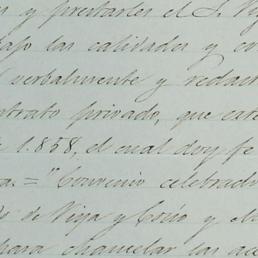 y prestarles el S. Vig
bajo las calidades y co
verbalmente y redact
ntrato privado, que est
1.858, el cual doy fe
= "Convenio celebrad
de Viya y Cosío y el
para chancelar las acc